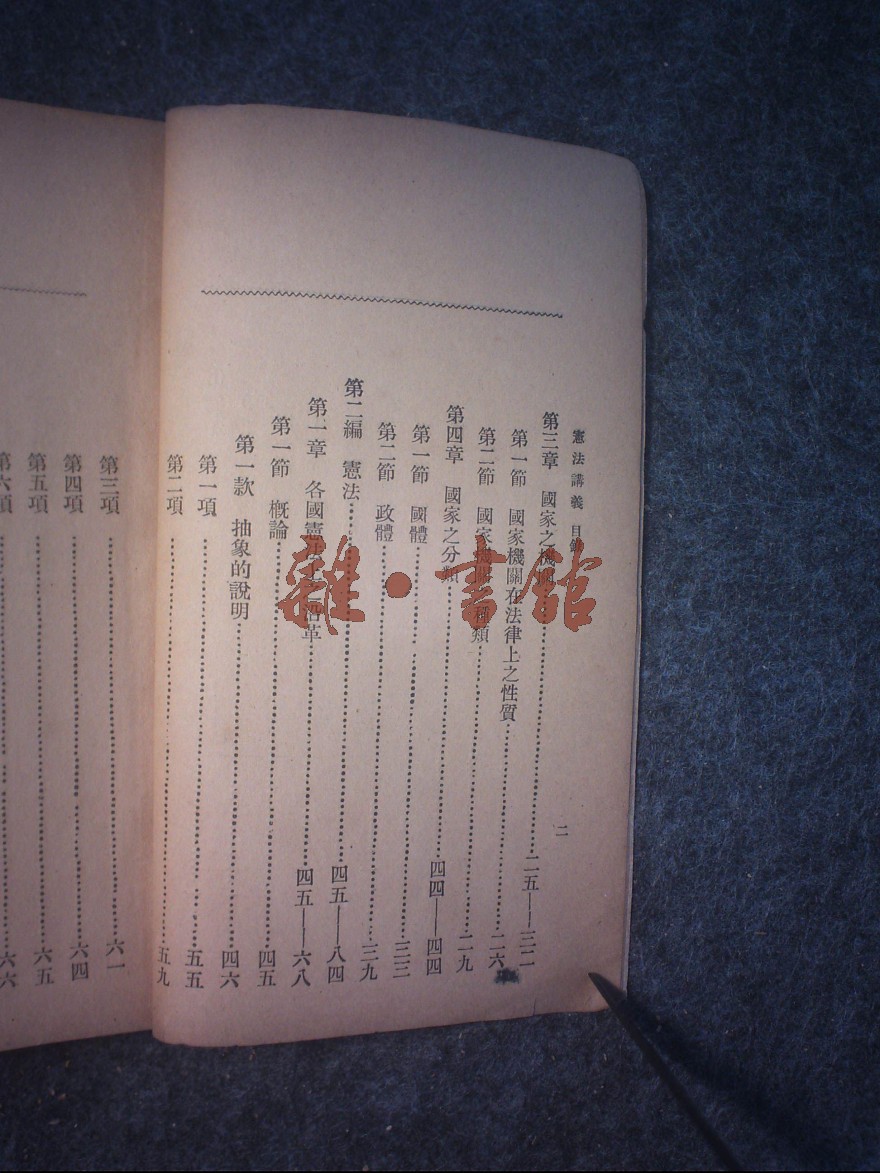 憲法講義 目錄 二
第三章 國家之機關……二五—三二
第一節 國家機關在法律上之性質……二六
第二節 國家機關 種類……二九
第四章 國家之分類……四四—四四
第一節 國體……三三
第二節 政體……三九
第二編 憲法……四五—八四
第一章 各國憲法 沿革……四五—六八
第一節 概論……四五
第一款 抽象的說明……四六
第一項……五五
第二項……五九
第三項……六一
第四項……六四
第五項……六五
第六項……六六
雜·書館